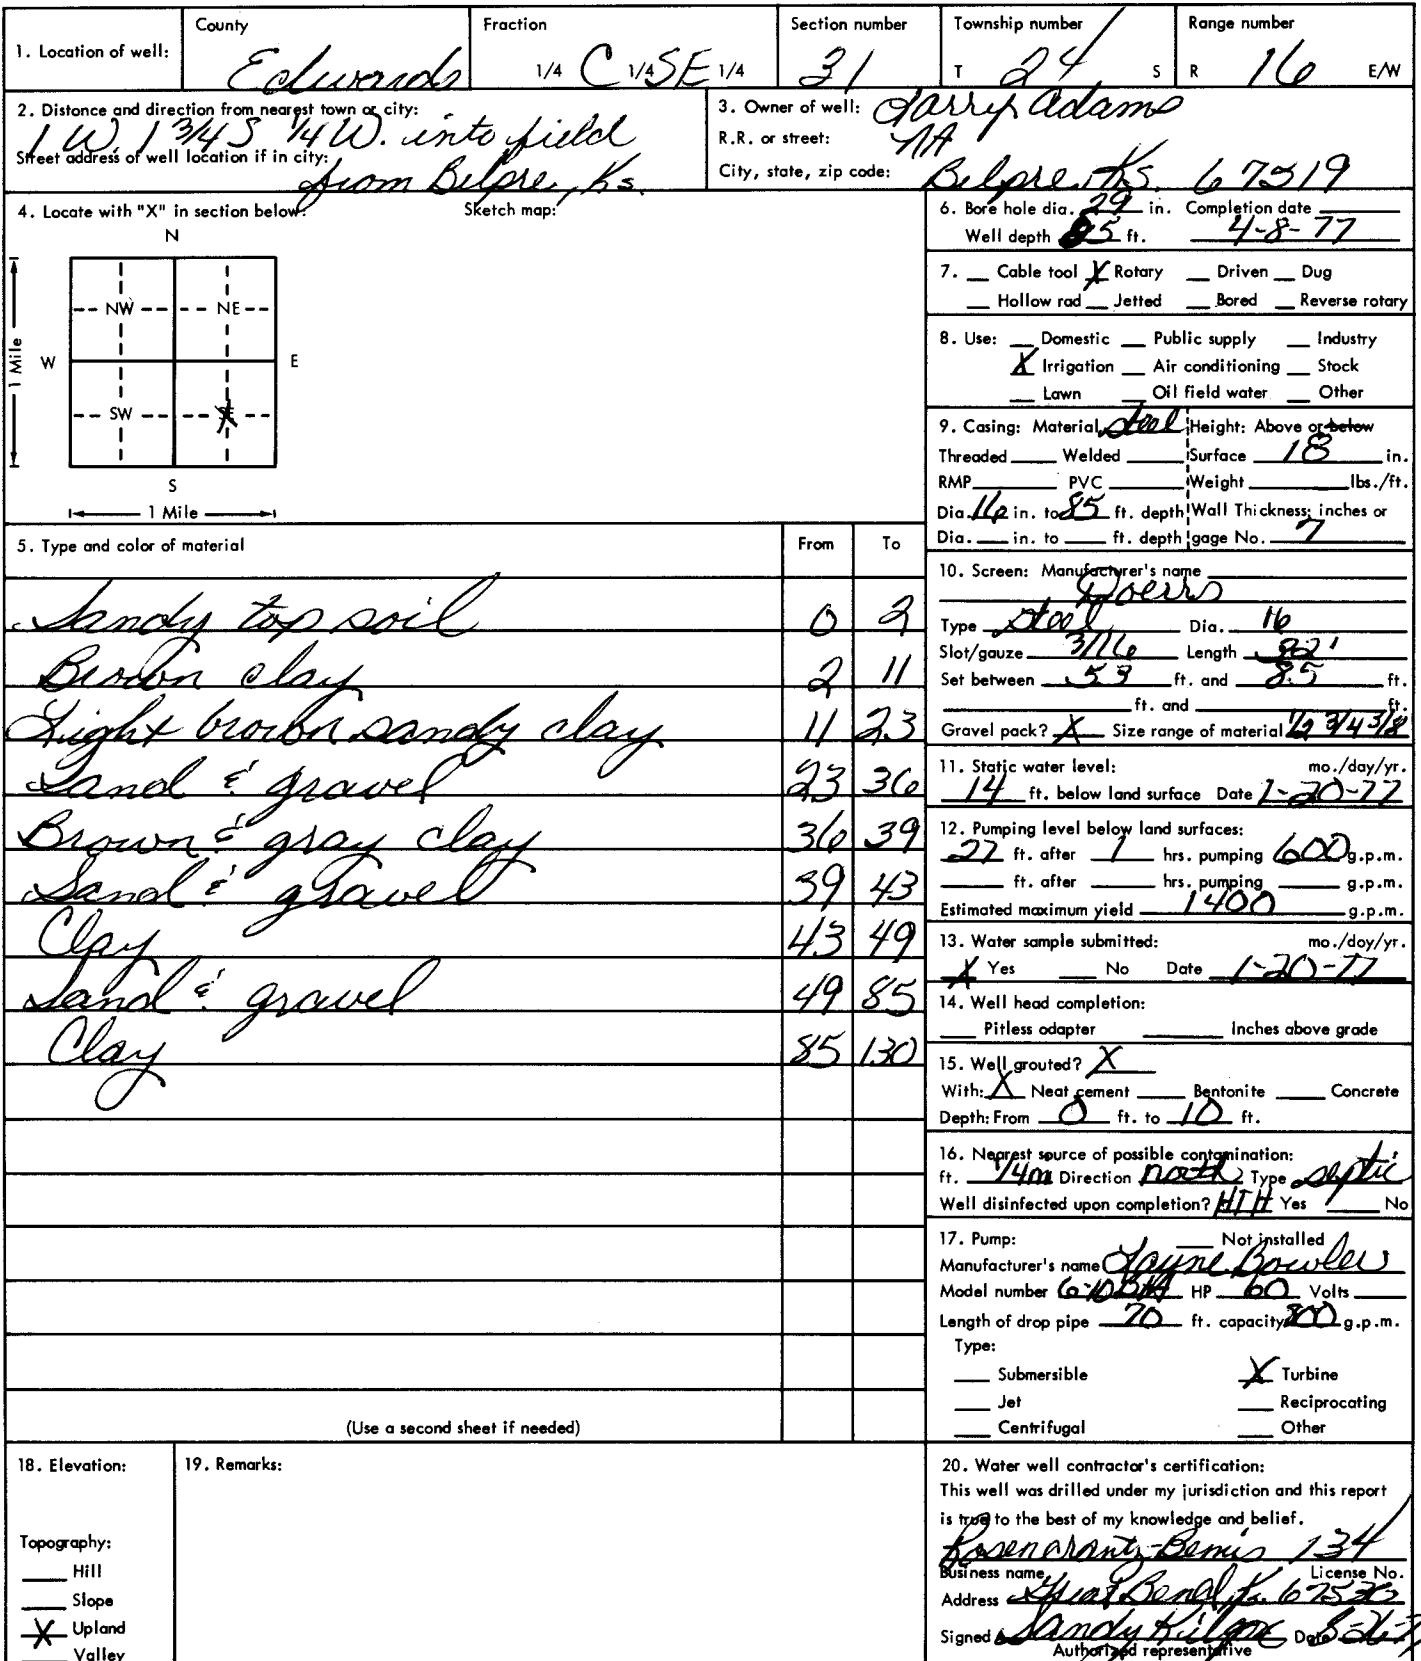 County Fraction Section number Township number Range number
1. Location of well: Edwards 1/4 C 1/4 SE 1/4 31 T 24 S R 16 E/W
2. Distance and direction from nearest town or city:
1 W. 1 3/4 S 1/4 W. into field
Street address of well location if in city:
from Belpre, Ks.
3. Owner of well: Larry Adams
R.R. or street: NA
City, state, zip code: Belpre, Ks. 67519
4. Locate with "X" in section below: Sketch map:
N
NW NE
1 Mile W E
SW SE
S
1 Mile
6. Bore hole dia. 29 in. Completion date
Well depth 85 ft. 4-8-77
7. Cable tool X Rotary Driven Dug
Hollow rad Jetted Bored Reverse rotary
8. Use: Domestic Public supply Industry
X Irrigation Air conditioning Stock
Lawn Oil field water Other
9. Casing: Material steel Height: Above or below
Threaded Welded Surface 18 in.
RMP PVC Weight lbs./ft.
Dia. 16 in. to 85 ft. depth Wall Thickness: inches or
Dia. in. to ft. depth gage No. 7
5. Type and color of material From To
Sandy top soil 0 2
Brown clay 2 11
Light brown sandy clay 11 23
Sand & gravel 23 36
Brown & gray clay 36 39
Sand & gravel 39 43
Clay 43 49
Sand & gravel 49 85
Clay 85 130
(Use a second sheet if needed)
10. Screen: Manufacturer's name
Doerrs
Type steel Dia. 16
Slot/gauze 3/16 Length 32'
Set between 53 ft. and 85 ft.
ft. and ft.
Gravel pack? X Size range of material 1/2 3/4 3/8
11. Static water level: mo./day/yr.
14 ft. below land surface Date 1-20-77
12. Pumping level below land surfaces:
27 ft. after 1 hrs. pumping 600 g.p.m.
ft. after hrs. pumping g.p.m.
Estimated maximum yield 1400 g.p.m.
13. Water sample submitted: mo./day/yr.
X Yes No Date 1-20-77
14. Well head completion:
Pitless adapter Inches above grade
15. Well grouted? X
With: X Neat cement Bentonite Concrete
Depth: From 0 ft. to 10 ft.
16. Nearest source of possible contamination:
ft. 1/4m Direction north Type septic
Well disinfected upon completion? HTH Yes No
17. Pump: Not installed
Manufacturer's name Layne Bowler
Model number HP 60 Volts
Length of drop pipe 70 ft. capacity 800 g.p.m.
Type:
Submersible X Turbine
Jet Reciprocating
Centrifugal Other
18. Elevation:
Topography:
Hill
Slope
X Upland
Valley
19. Remarks:
20. Water well contractor's certification:
This well was drilled under my jurisdiction and this report
is true to the best of my knowledge and belief.
Rosencrantz-Bemis 134
Business name License No.
Address Great Bend, Ks. 67530
Signed Sandy Kilgore Date
Authorized representative